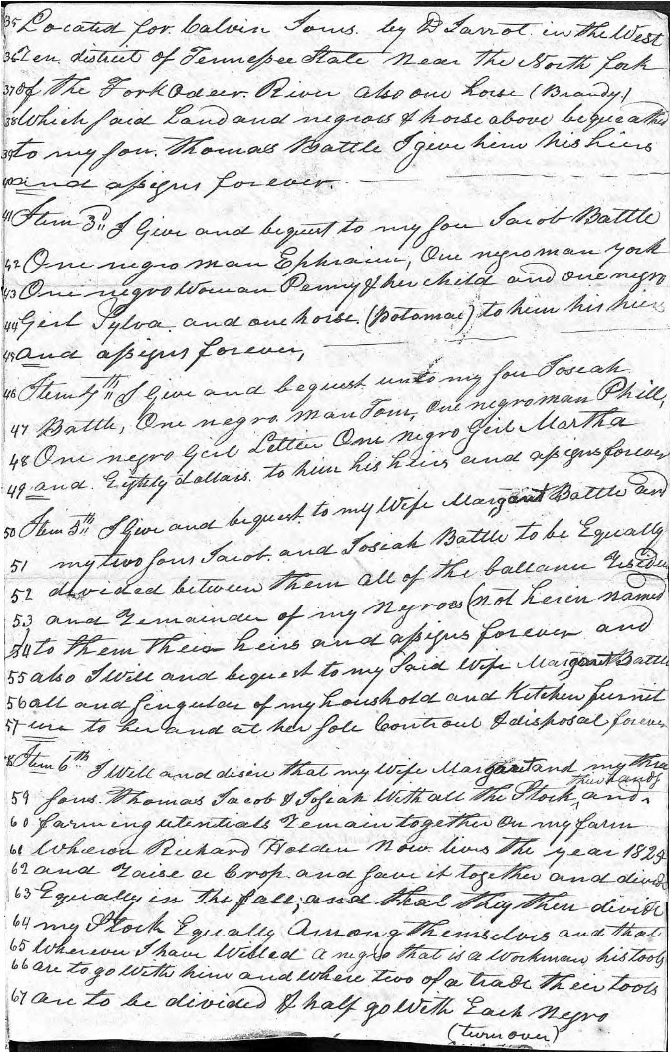 35 Located for Calvin Jones by D Jarrot in the West
36 Ten district of Tennessee State near the North fork
37 of the Forkadeer River also one horse (Brandy)
38 Which said Land and negros & horse above bequeathed
39 to my son Thomas Battle I give him his heirs
40 and assigns forever.
41 Item 3d I Give and bequest to my son Jacob Battle
42 One negro man Ephraim, One negro man york
43 One negro Woman Penny & her child and one negro
44 Girl Sylva and one horse (Potomac) to him his heirs
45 and assigns forever,
46 Item 4th I Give and bequest unto my son Joseah
47 Battle, One negro man Tom, One negro man Phill,
48 One negro Girl Letter One negro Girl Martha
49 and Eighty dollars to him his heirs and assigns forever
50 Item 5th I Give and bequest to my Wife Margaret Battle and
51 my two sons Jacob and Joseah Battle to be Equally
52 divided between them all of the ballance residue
53 and remainder of my Negros (not herein named
54 to them their heirs and assigns forever and
55 also I Will and bequest to my Said Wife Margaret Battle
56 all and singular of my houshold and Kitchen furnit
57 ure to her and at her sole Controul & disposal forever
58 Item 6th I Will and disire that my Wife Margaret and my three
59 sons Thomas Jacob & Joseah With all the Stock, their hands and
60 farming utentials remain together on my farm
61 Whereon Richard Holden Now lives the year 1824
62 and raise a Crop and save it together and divide
63 Equally in the fall; and that they then divide
64 my Stock Equally Among themselves and that
65 Whereon I have Willed a negro that is a Workman his tools
66 are to go With him and Where two of a trade their tools
67 are to be divided & half go With Each Negro
(turn over)